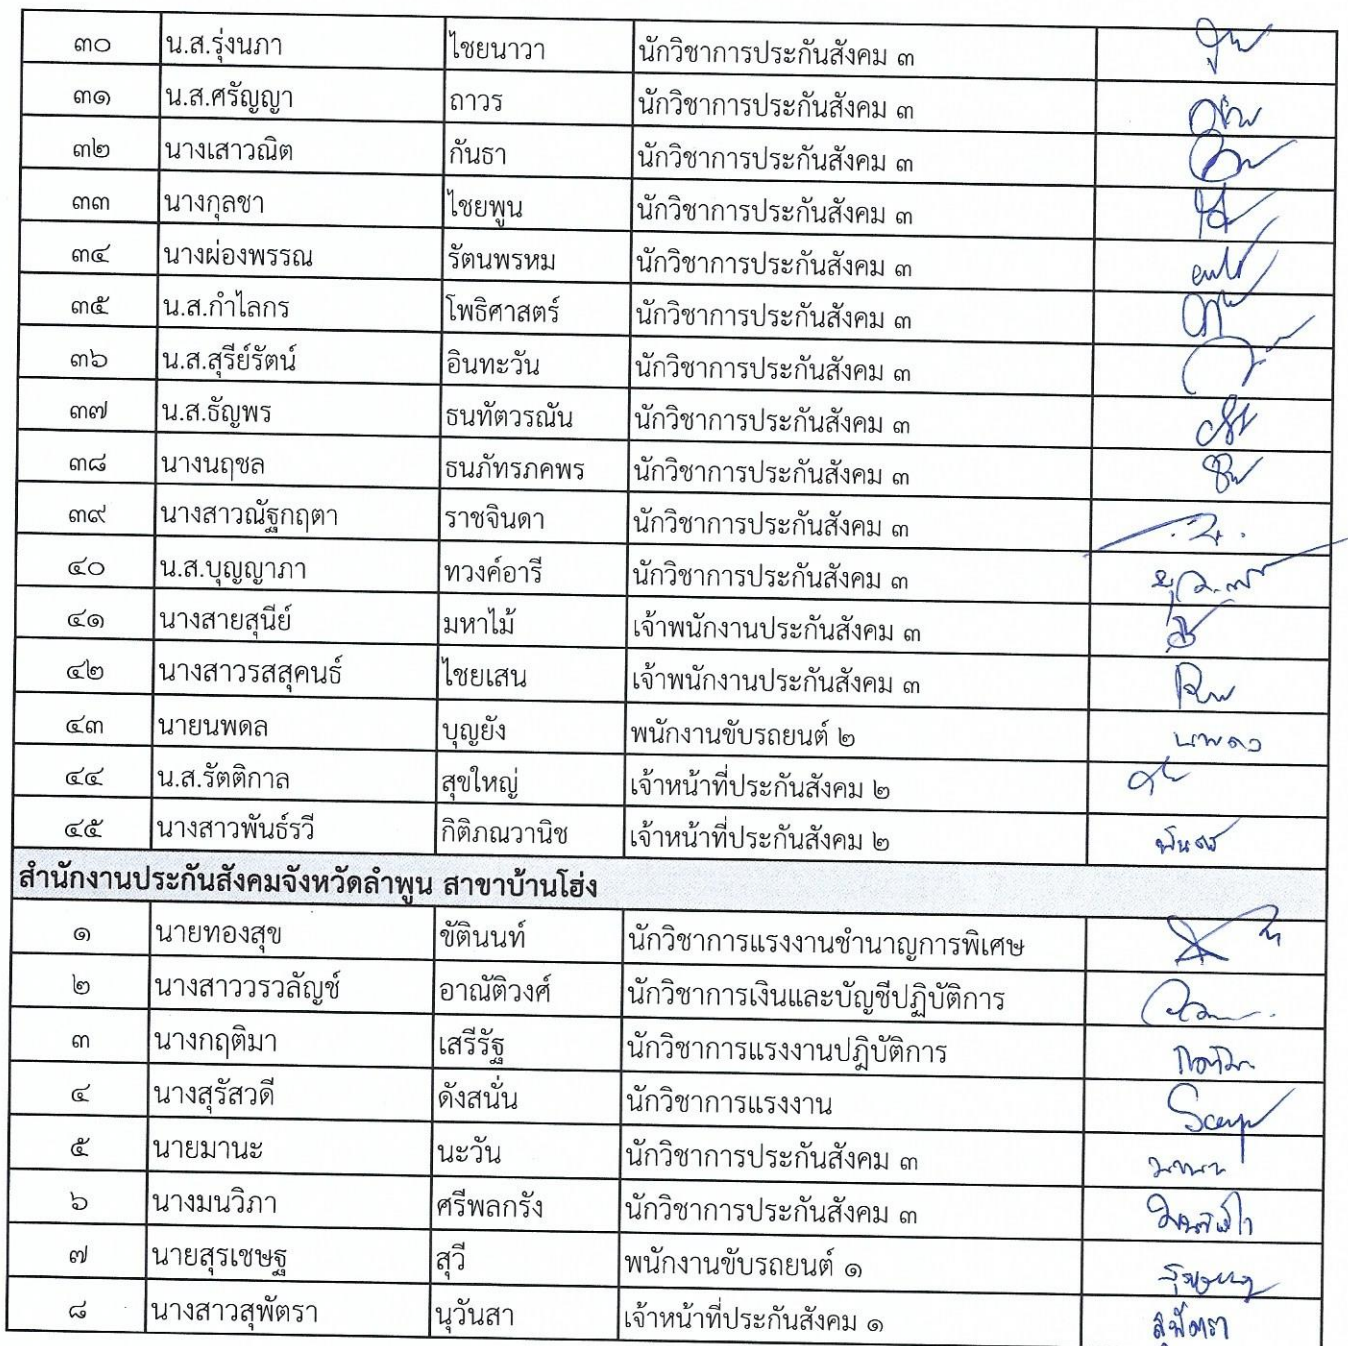 ๓๐ น.ส.รุ่งนภา ไชยนาวา นักวิชาการประกันสังคม ๓
๓๑ น.ส.ศรัญญา ถาวร นักวิชาการประกันสังคม ๓
๓๒ นางเสาวณิต กันธา นักวิชาการประกันสังคม ๓
๓๓ นางกุลชา ไชยพูน นักวิชาการประกันสังคม ๓
๓๔ นางผ่องพรรณ รัตนพรหม นักวิชาการประกันสังคม ๓
๓๕ น.ส.กำไลกร โพธิศาสตร์ นักวิชาการประกันสังคม ๓
๓๖ น.ส.สุรีย์รัตน์ อินทะวัน นักวิชาการประกันสังคม ๓
๓๗ น.ส.ธัญพร ธนทัตวรณัน นักวิชาการประกันสังคม ๓
๓๘ นางนฤชล ธนภัทรภคพร นักวิชาการประกันสังคม ๓
๓๙ นางสาวณัฐกฤตา ราชจินดา นักวิชาการประกันสังคม ๓
๔๐ น.ส.บุญญาภา ทวงค์อารี นักวิชาการประกันสังคม ๓
๔๑ นางสายสุนีย์ มหาไม้ เจ้าพนักงานประกันสังคม ๓
๔๒ นางสาวรสสุคนธ์ ไชยเสน เจ้าพนักงานประกันสังคม ๓
๔๓ นายนพดล บุญยัง พนักงานขับรถยนต์ ๒ นพดล
๔๔ น.ส.รัตติกาล สุขใหญ่ เจ้าหน้าที่ประกันสังคม ๒
๔๕ นางสาวพันธ์รวี กิติภณวานิช เจ้าหน้าที่ประกันสังคม ๒
สำนักงานประกันสังคมจังหวัดลำพูน สาขาบ้านโฮ่ง
๑ นายทองสุข ขัตินนท์ นักวิชาการแรงงานชำนาญการพิเศษ
๒ นางสาววรวลัญช์ อาณัติวงศ์ นักวิชาการเงินและบัญชีปฏิบัติการ
๓ นางกฤติมา เสรีรัฐ นักวิชาการแรงงานปฏิบัติการ
๔ นางสุรัสวดี ดังสนั่น นักวิชาการแรงงาน
๕ นายมานะ นะวัน นักวิชาการประกันสังคม ๓ มานะ
๖ นางมนวิภา ศรีพลกรัง นักวิชาการประกันสังคม ๓
๗ นายสุรเชษฐ สุวี พนักงานขับรถยนต์ ๑
๘ นางสาวสุพัตรา นุวันสา เจ้าหน้าที่ประกันสังคม ๑ สุพัตรา